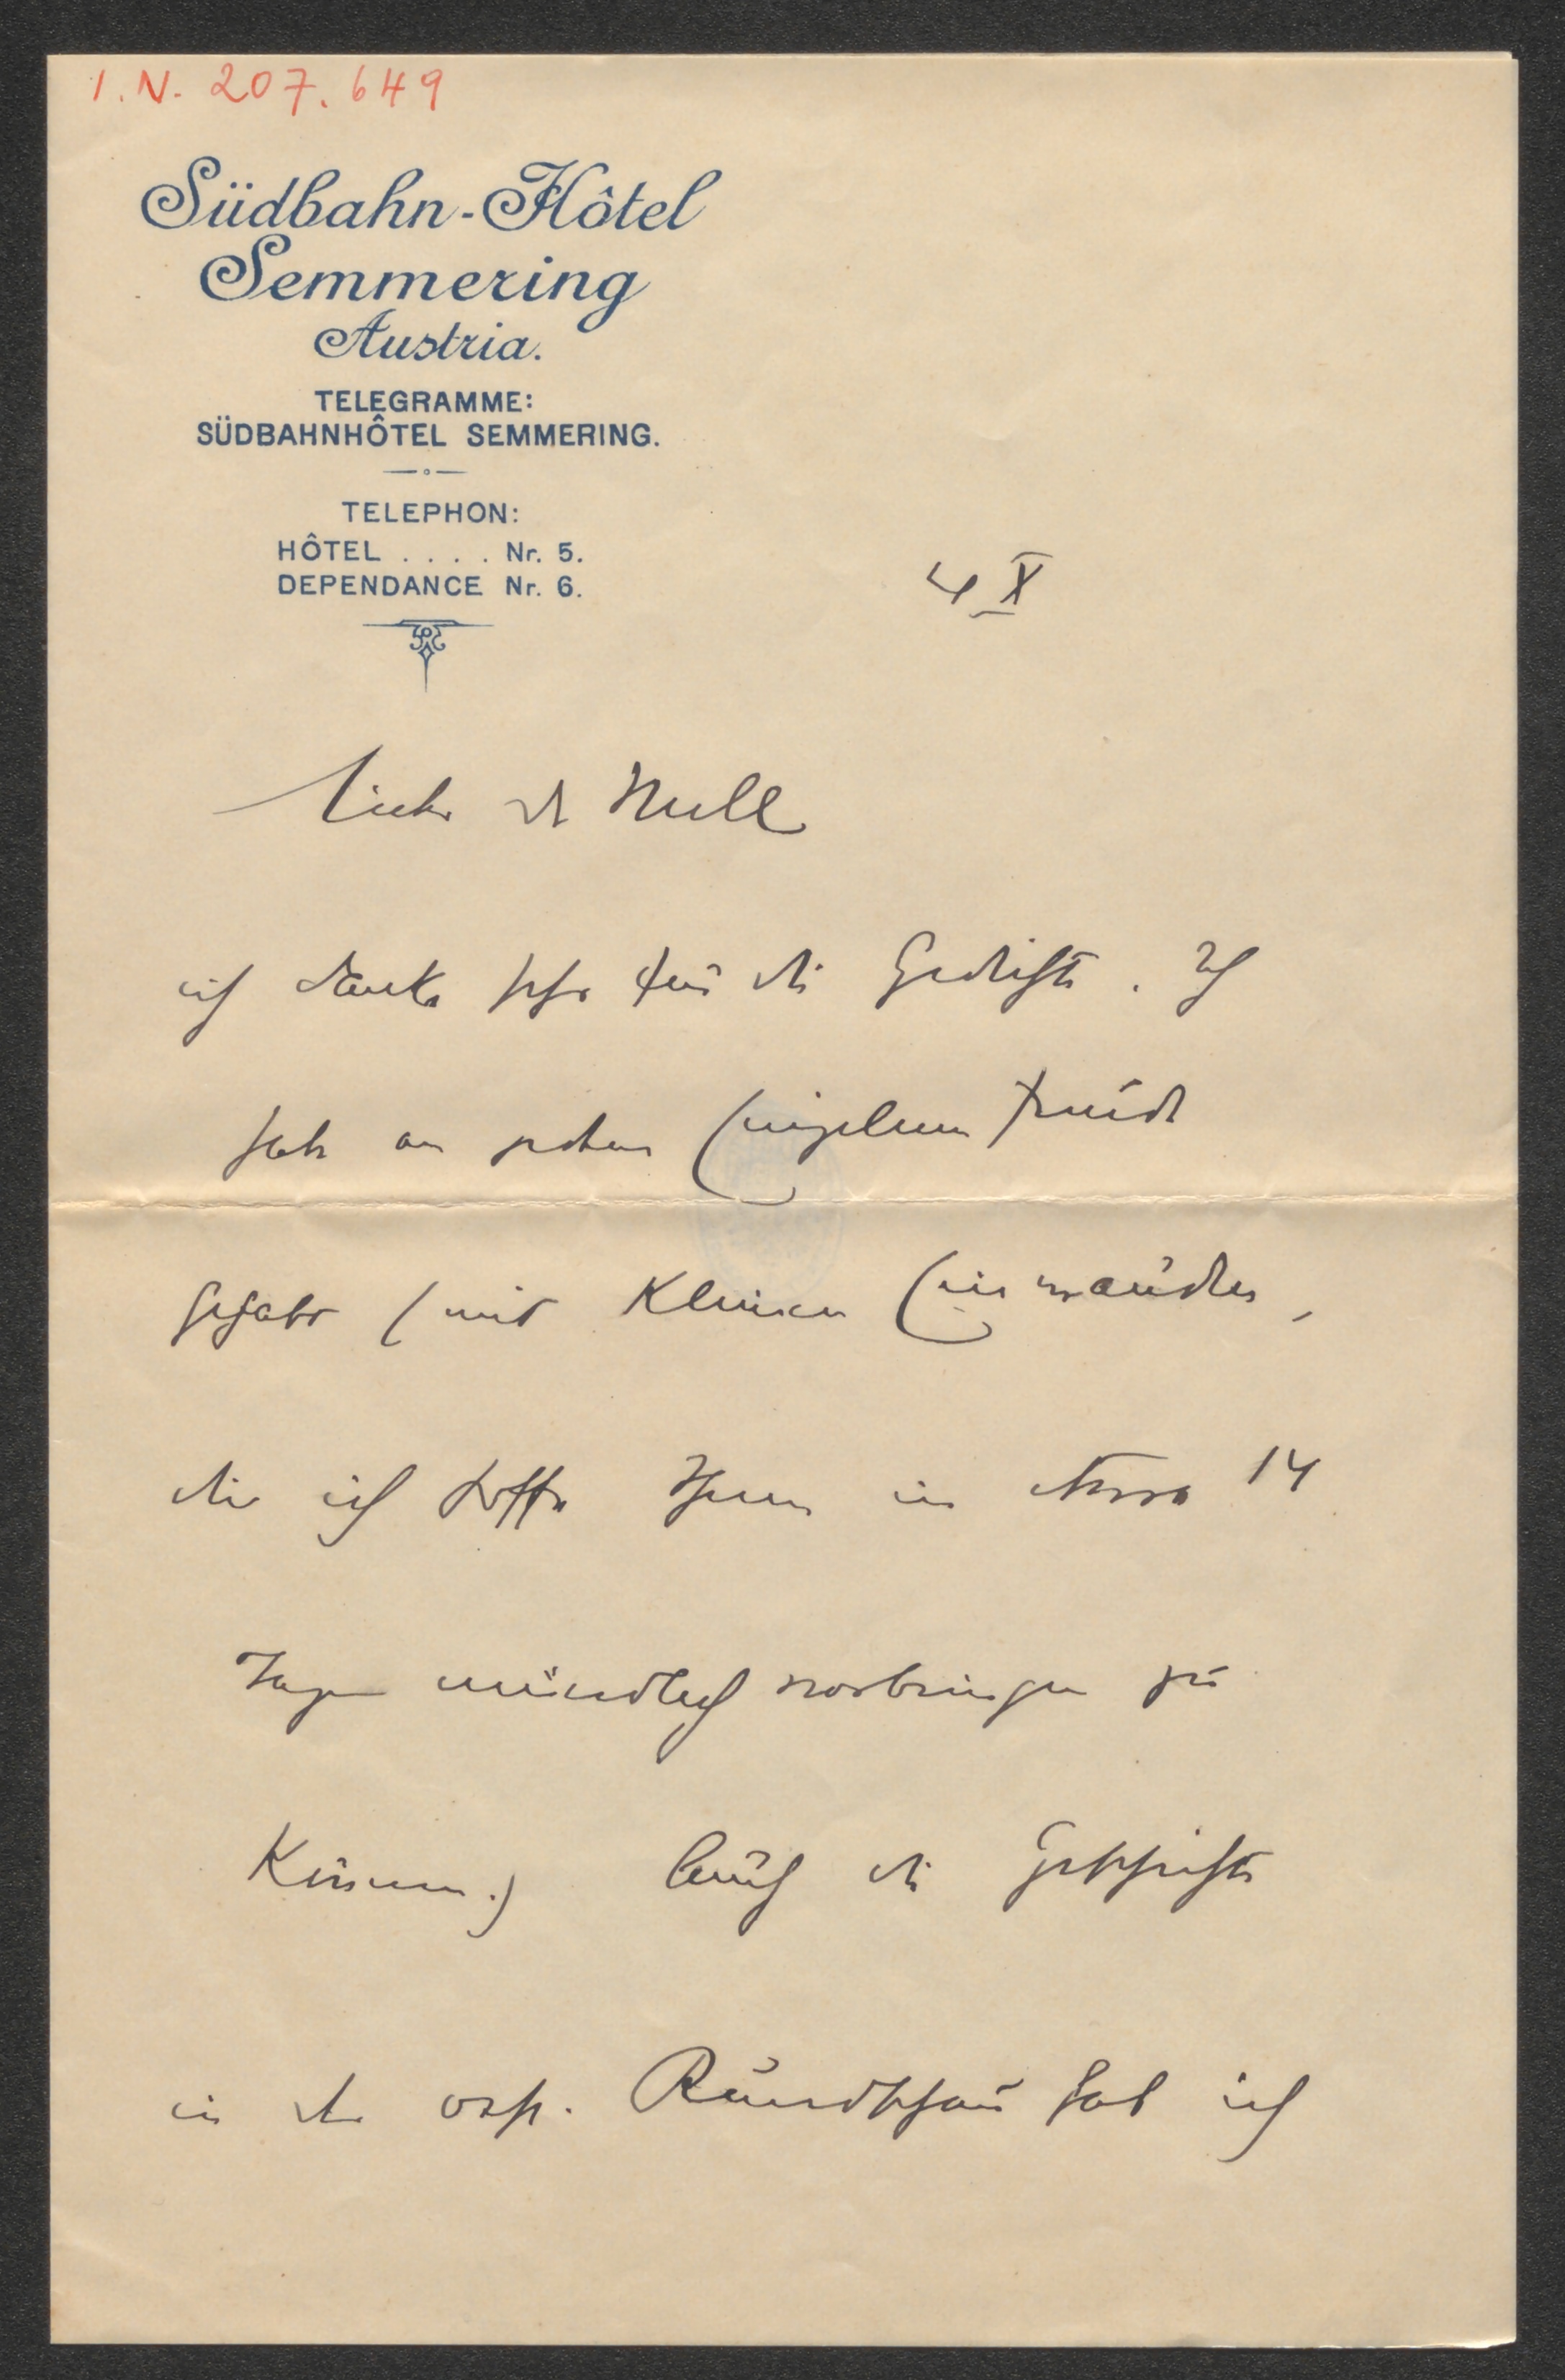 I.N. 207.649
Südbahn-Hôtel
Semmering
Austria.
TELEGRAMME:
SÜDBAHNHÔTEL SEMMERING.
TELEPHON:
HÔTEL . . . . Nr. 5.
DEPENDANCE Nr. 6.
4 X
Lieber Dr Mell
ich danke sehr für die Gedichte. Ich
habe an jedem Einzelnen Freude
gehabt (mit kleinen Einwänden,
die ich hoffe Ihnen in etwa 14
Tagen mündlich vorbringen zu
können.) Auch die Geschichte
in der oest. Rundschau hab ich